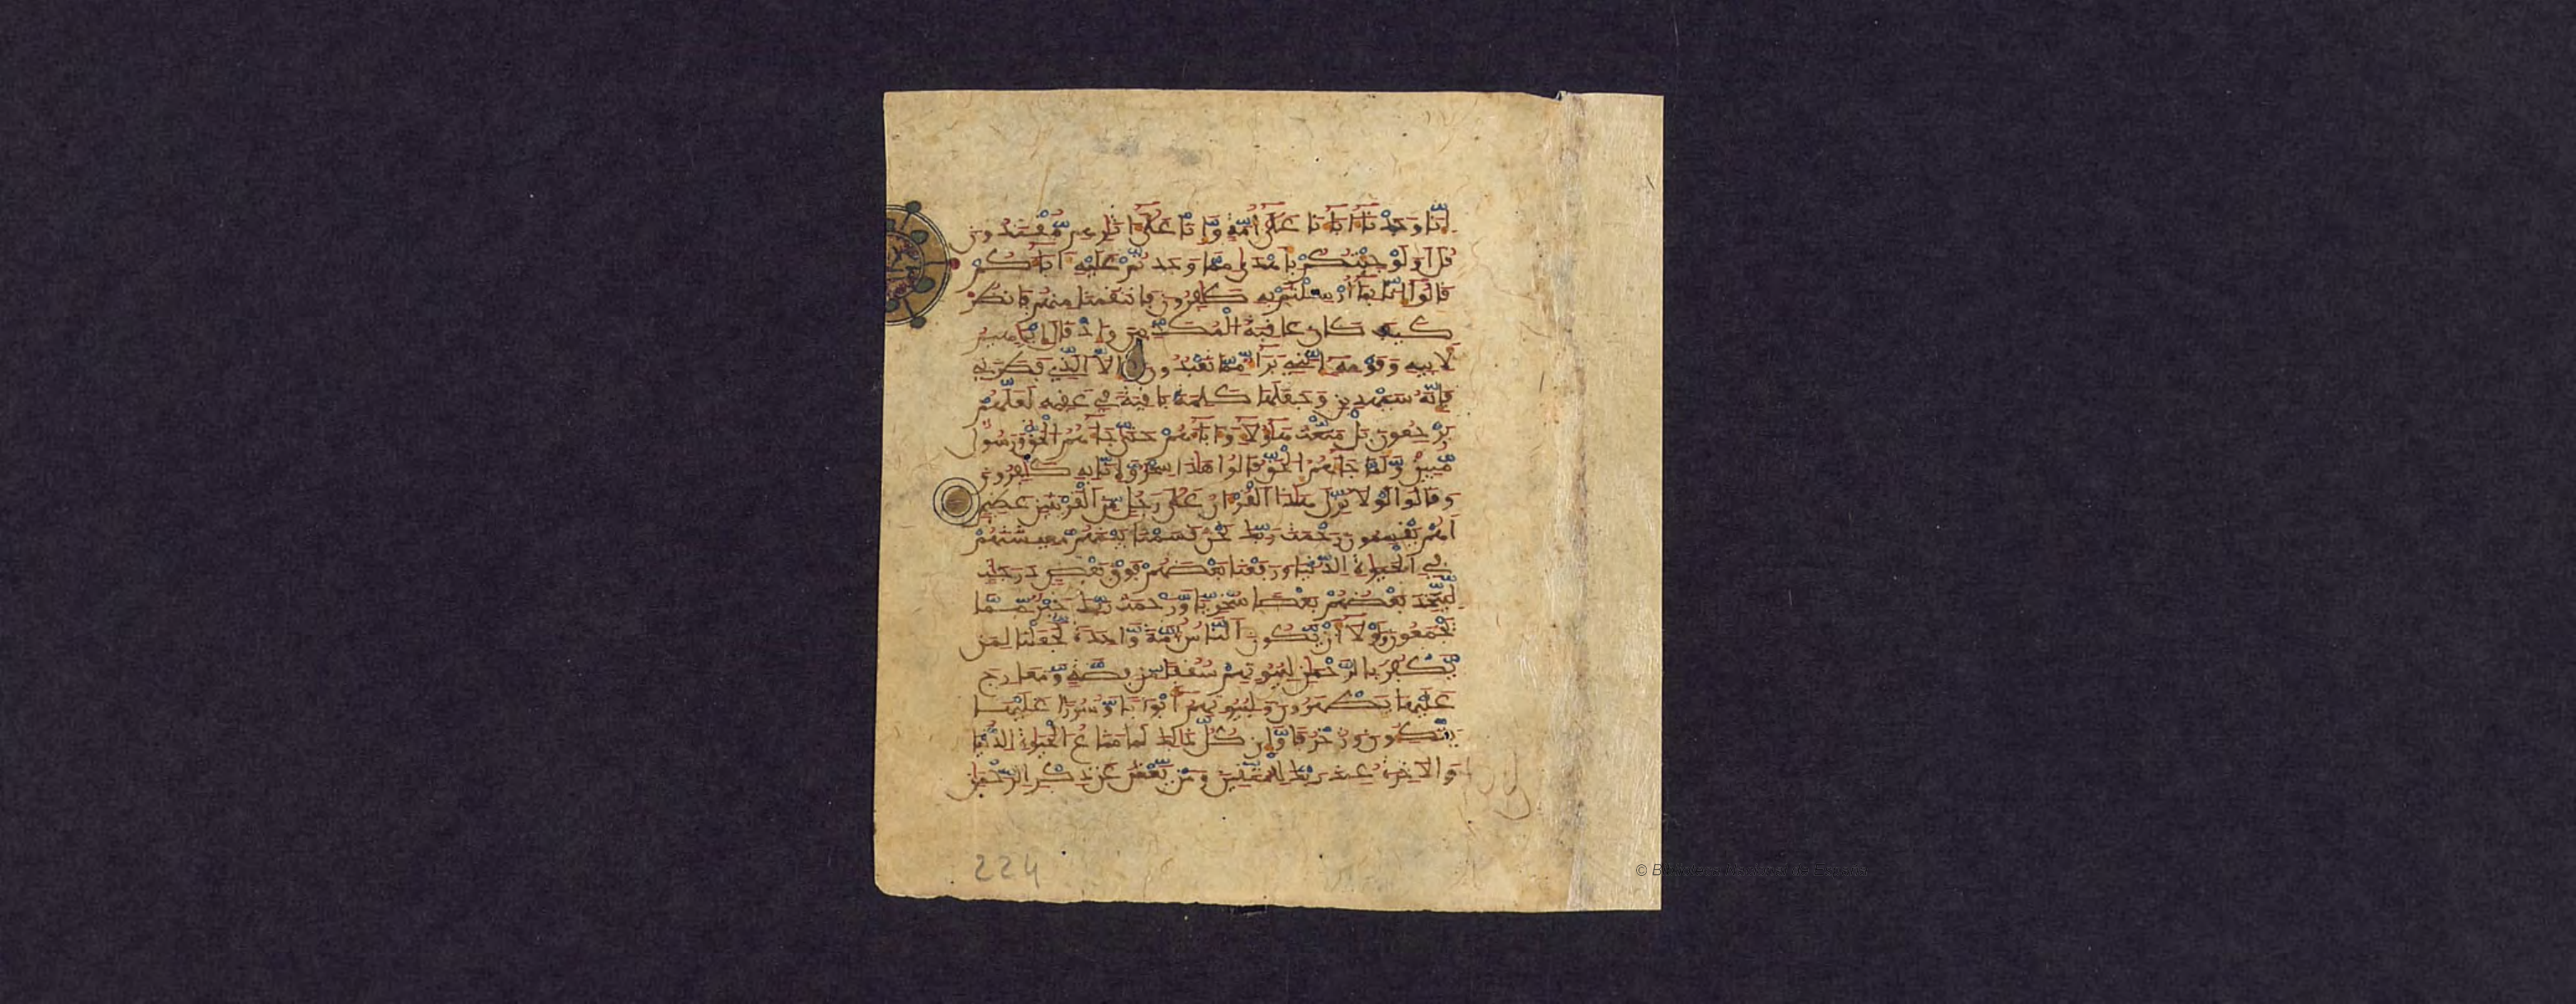 إنا وجدنا ءاباءنا على أمة وإنا على ءاثرهم مقتدون
قل أولو جئتكم بأهدى مما وجدتم عليه ءاباءكم
قالوا إنا بما أرسلتم به كفرون فانتقمنا منهم فانظر
كيف كان عاقبة المكذبين وإذ قال إبرهيم
لأبيه وقومه إنني براء مما تعبدون إلا الذي فطرني
فإنه سيهدين وجعلها كلمة باقية في عقبه لعلهم
يرجعون بل متعت هؤلاء وءاباءهم حتى جاءهم الحق ورسول
مبين ولما جاءهم الحق قالوا هذا سحر وإنا به كفرون
وقالوا لولا نزل هذا القرءان على رجل من القريتين عظيم
أهم يقسمون رحمت ربك نحن قسمنا بينهم معيشتهم
في الحيوة الدنيا ورفعنا بعضهم فوق بعض درجت
ليتخذ بعضهم بعضا سخريا ورحمت ربك خير مما
يجمعون ولولا أن يكون الناس أمة واحدة لجعلنا لمن
يكفر بالرحمن لبيوتهم سقفا من فضة ومعارج
عليها يظهرون ولبيوتهم أبوابا وسررا عليها
يتكون وزخرفا وإن كل ذلك لما متاع الحيوة الدنيا
والاخرة عند ربك للمتقين ومن يعش عن ذكر الرحمن
224
© Biblioteca Nacional de España